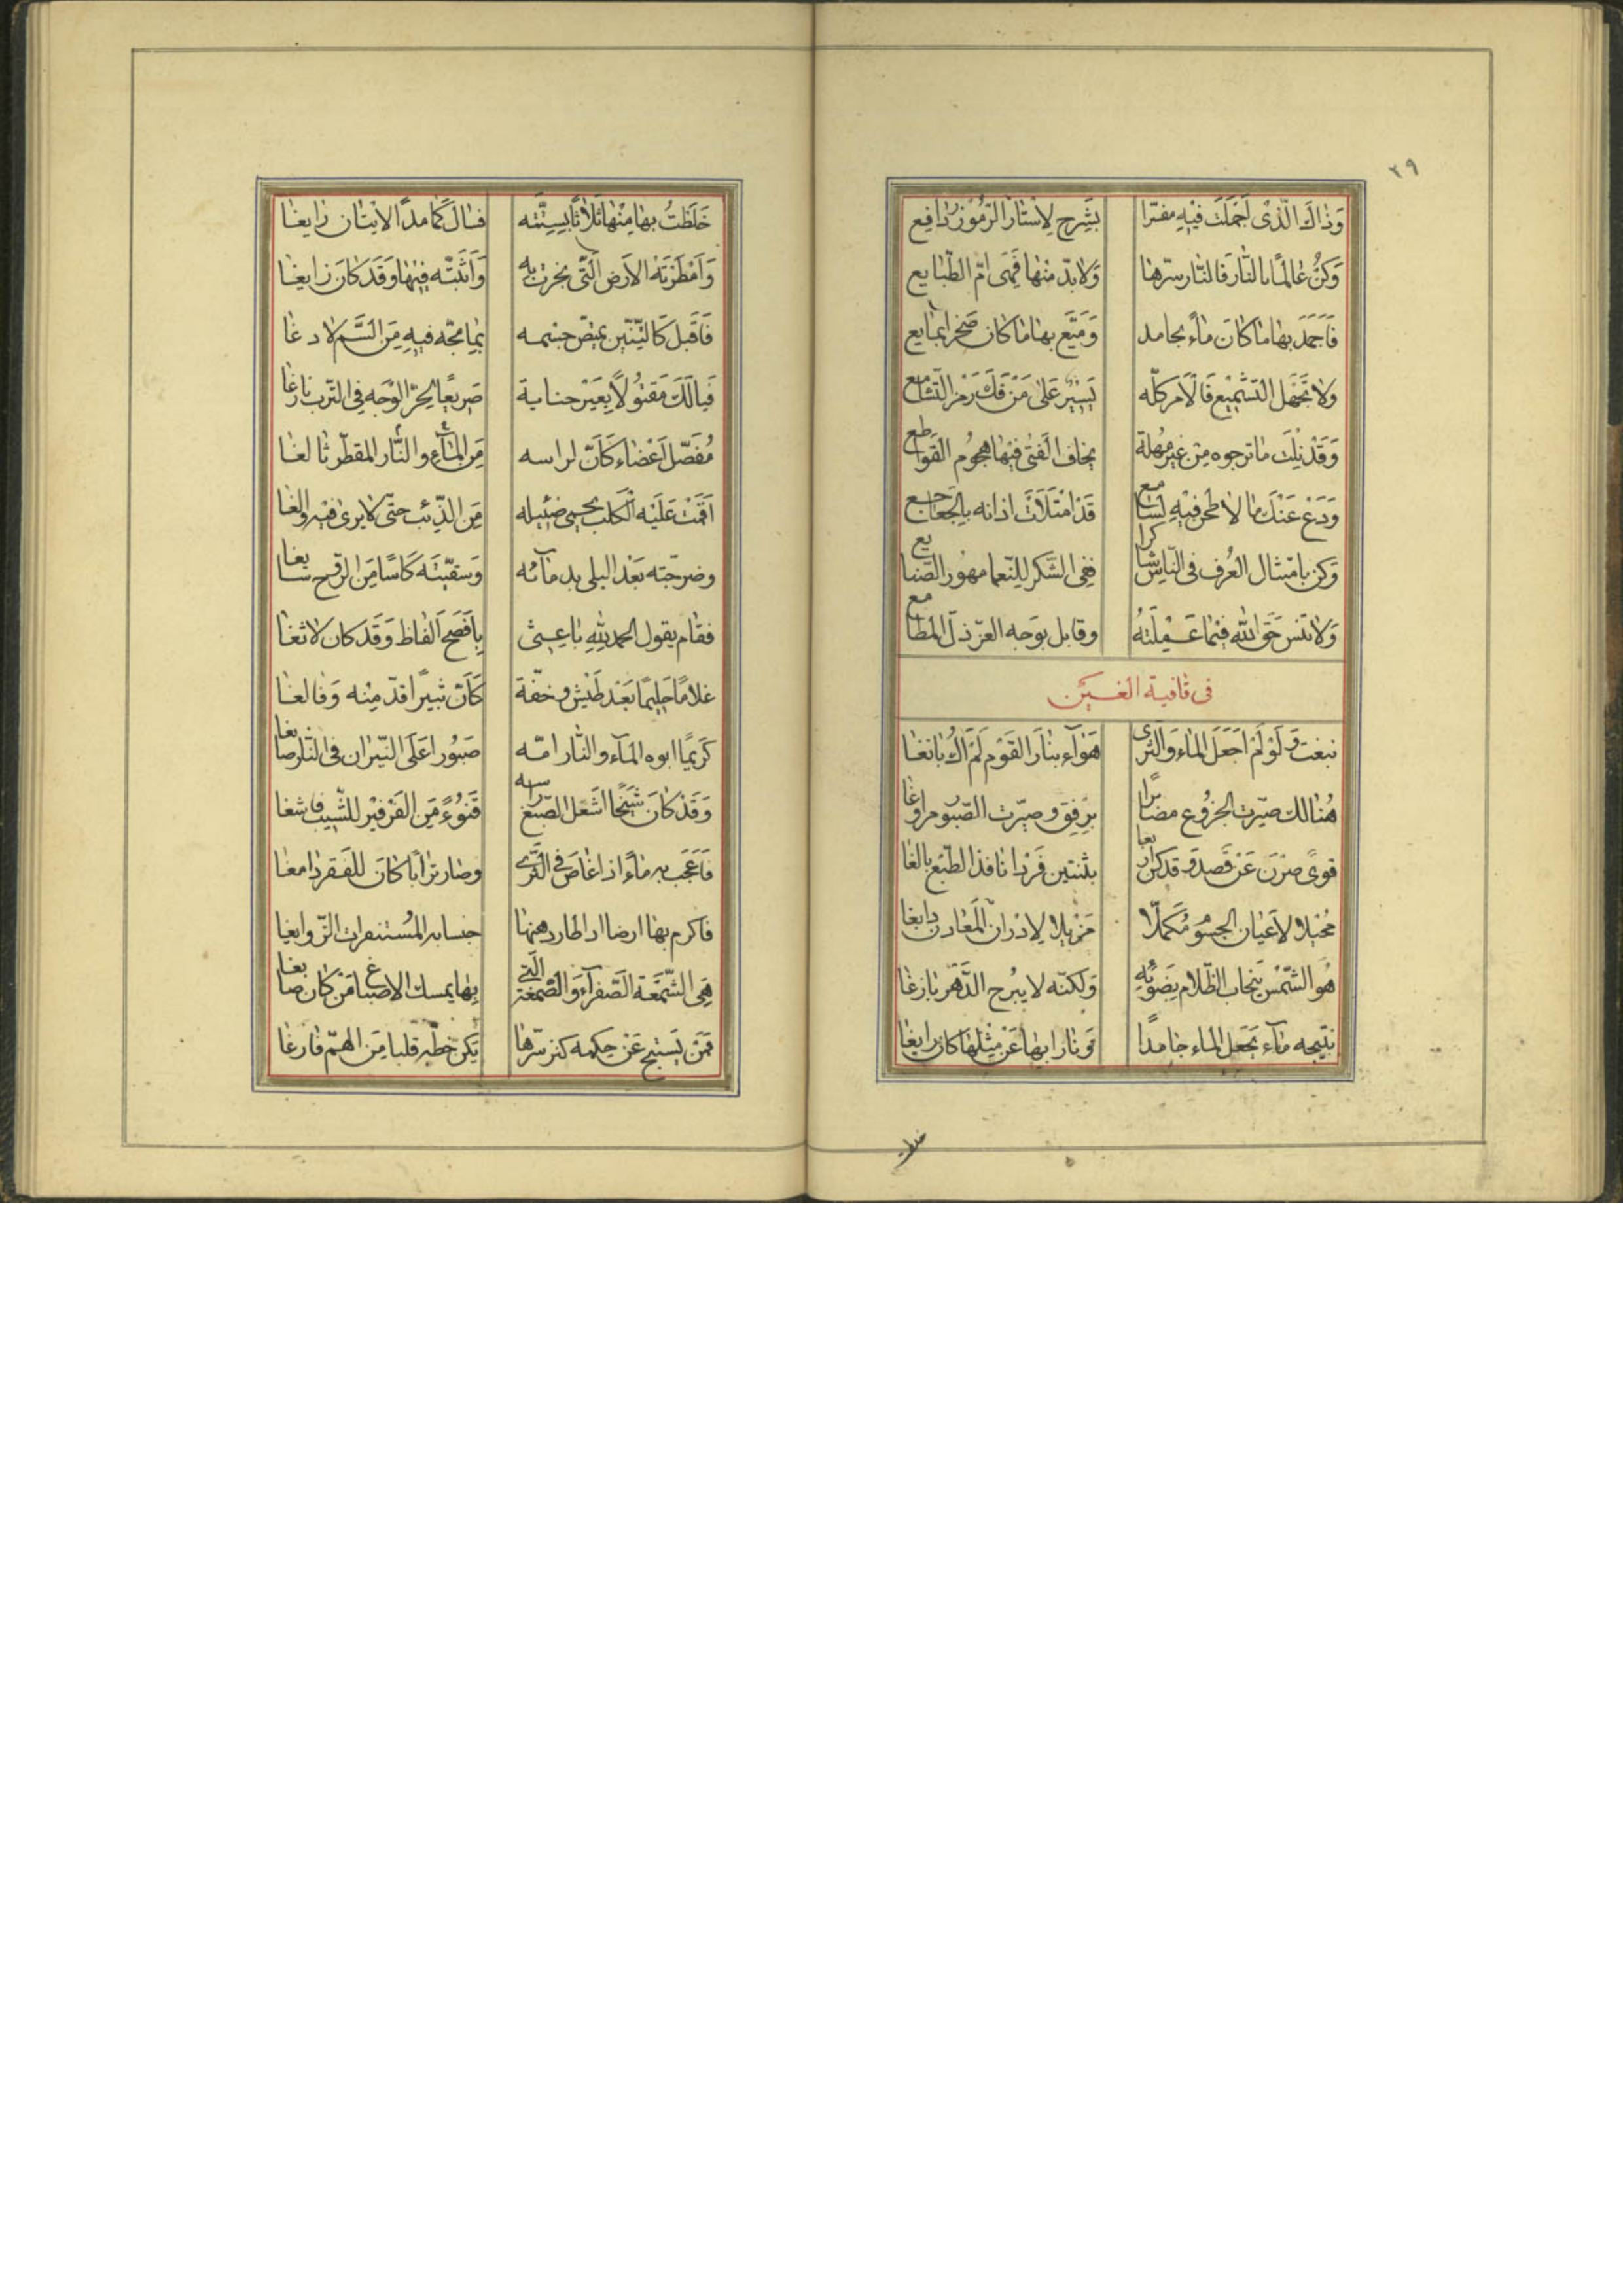 ٢٩
وَذٰاكَ الَّذى اَجْمَلْتَ فيْهِ مفسّرا بشَرحٍ لِاَسْتارِ الرّمُوزِ رٰافِع
وَكُنْ عٰالمًا بالنّٰار فَالنّٰار سرّها وَلابدّ منْها فَهْىَ امّ الطّبايع
فَاَجَمَد بهٰا مٰا كٰانَ مٰاءً بجامد وَمَيّع بهٰا مٰا كان صَخرا بمٰايع
ولا تجْهَل التَشْميْع فَالاَمر كلّه يَسيْر عَلىٰ مَنْ فَكّ رَمْز التّشامع
وَقَدْ نِلْتَ مٰا ترجوه مِنْ غيْر مُهْلة يخاف الَفتىٰ فيْهٰا هجُوُم القَواطع
وَدَعْ عَنْكَ مٰا لا طحْن فيْهِ لسٰامع قَدْ امْتَلَاَتْ اذانه بِالجَعٰاجع
وَكن بامْتثال العُرف فى النّاس شاكرا ففِى الشّكر للِنّعما مهُور الصّنايع
وَلا تنْس حَقّ اللّٰه فيْما عَـقِلْتَهُ وقابل بوَجه العزّ ذلّ المَطٰامع
فى قٰافية الغـيَن
نبغت وَلَوْ لَمْ اَجْعَل المٰاء وَالثّرى هَوٰاء بنٰار القَوْم لَمْ اَكُ نابغٰا
هُنٰالك صيّرت الجزُوع مصٰابرا برِفق وصيّرت الصّبُور مراوغٰا
قوىً صِرْنَ عَنْ قَصد وقد كنّ اربعا بثنتين فَرْدا نافذ الطّبْع بالغا
مُحْيلا لاَعْيان الجسُوم مُكَملّا مَزيْلا لِادْران المَعٰادن دابغا
هُو الشّمْس ينجاب الظّلام بِضَوْئِهِ وَلكنّه لا يبْرح الدّهْر بازغا
نتيجه مٰآء يَجعل المٰاء جٰامدًا وَنٰار ابها عَنْ مثْلهٰا كان رايغا
خَلَطْتُ بهٰا مِنْهٰا ثَلاثًا بسِتّته فسٰالَ كَمٰا مدّ الاتيٰان رٰايغا
وَاَمْطَرْتَهُ الاَرض الّتى بخرت به وَاَثْبَتّه فِيْهٰا وَقَدْ كٰانَ زايغـٰا
فَاَقْبَل كَالتِّنيّن يمتصّ جسْمـه بِمٰا مجّه فيهِ مِنَ السّم لا دغا
فَيا لَكَ مَقْتوُلًا بِغَيْر جنـاية صَريعًا بحُرّ الوْجه فى التّرب نازغٰا
مُفَصّل اَعْضٰاء كَاَنّ لراسه مِنَ المٰآءِ والنّار المقطّر ثٰا لغـا
اَقَمْت عَلَيْه الكَلب يحمى ضئيله مِنَ الذّئب حتّى لا يرىٰ فيْه والغٰا
وضرجّته بَعْدَ البلى بد مآئه وَسقيّتَه كَاسًا مِنَ الرّوح سـٰايغـا
فقام يقول الحمد للّٰه بٰاعـثى بِاَفْصَح اَلفاظ وَقَدْ كٰان لا ثغٰا
غلامًا حَليمًا بَعْد طَيْشٍ وخفّة كَاَنّ ثبيرًا قدّ مِنْه وَفٰالغـٰا
كَريْمًا ابوه المٰآء والنّٰار امّـه صَبُورا عَلَى النّيْران فى النّار صابغا
وَقَدْ كانَ شَيْخًا اشْعَل الصّبْغ راسه قَنوُءً مِنَ الفَرْفيْر للشّيب فاشغا
فَاَعْجب به مٰاءً اذا غٰاصَ فى الثّرىٰ وصٰار ترٰابًا كٰانَ للفَقر دٰامغا
فاكرم بهٰا ارضا اذا طار دهنها
هِىَ الشّمْعَة الصّفرٰآء وَالصّمْغة الّتى بهٰا يمسك الاَصباغ مَنْ كٰان صٰابغـا
فَمَنْ يَسْتبح عَنْ حِكمة كنز سرّها يَكنْ حظّه قلبا مِنَ الهـمّ فٰارغٰا